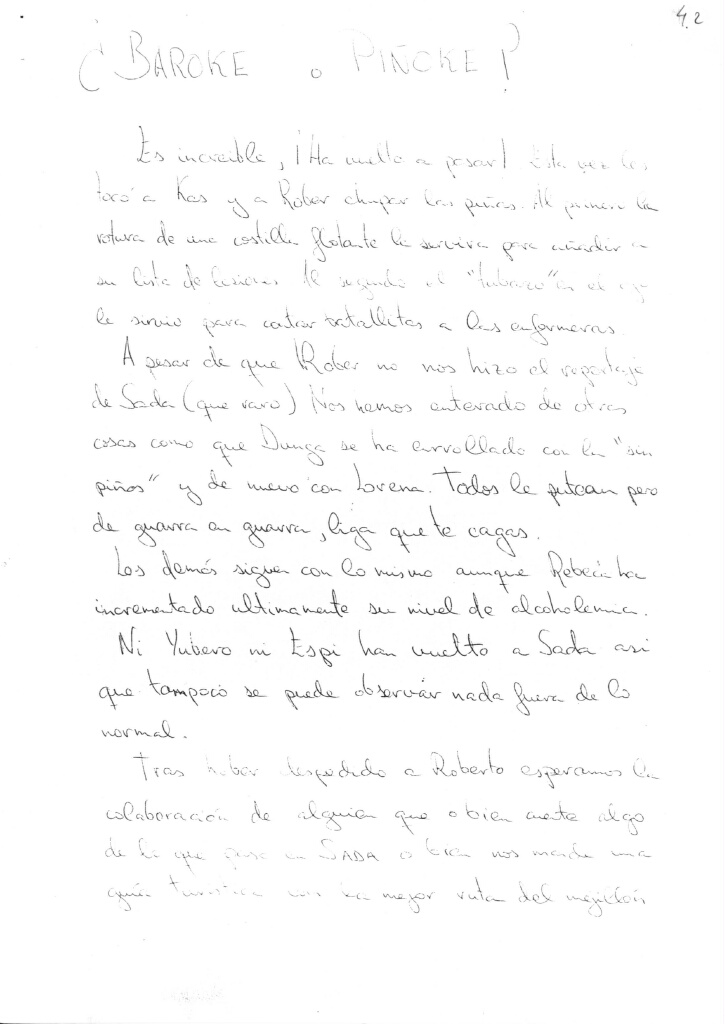 4.2
¿BAROKE o PIÑOKE?
Es increible, ¡Ha vuelto a pasar! Esta vez les
tocó a Kas y a Rober chupar las piñas. Al primero la
rotura de una costilla flotante le servira para añadir a
su lista de lesiones. Al segundo el "tubazo" en el
le sirvio para contar batallitas a las enfermeras.
A pesar de que Rober no nos hizo el reportaje
de Sada (que raro) Nos hemos enterado de otras
cosas como que Dunga se ha enrollado con la "sin
piños" y de nuevo con Lorena. Todos le putean pero
de guarra en guarra, liga que te cagas.
Los demás siguen con lo mismo aunque Rebeca ha
incrementado ultimamente su nivel de alcoholemia.
Ni Yubero ni Espi han vuelto a Sada asi
que tampoco se puede observar nada fuera de lo
normal.
Tras haber despedido a Roberto esperamos la
colaboración de alguien que o bien cuente algo
de lo que pasa en SADA o bien nos mande una
guía turistica con la mejor ruta del mejillón